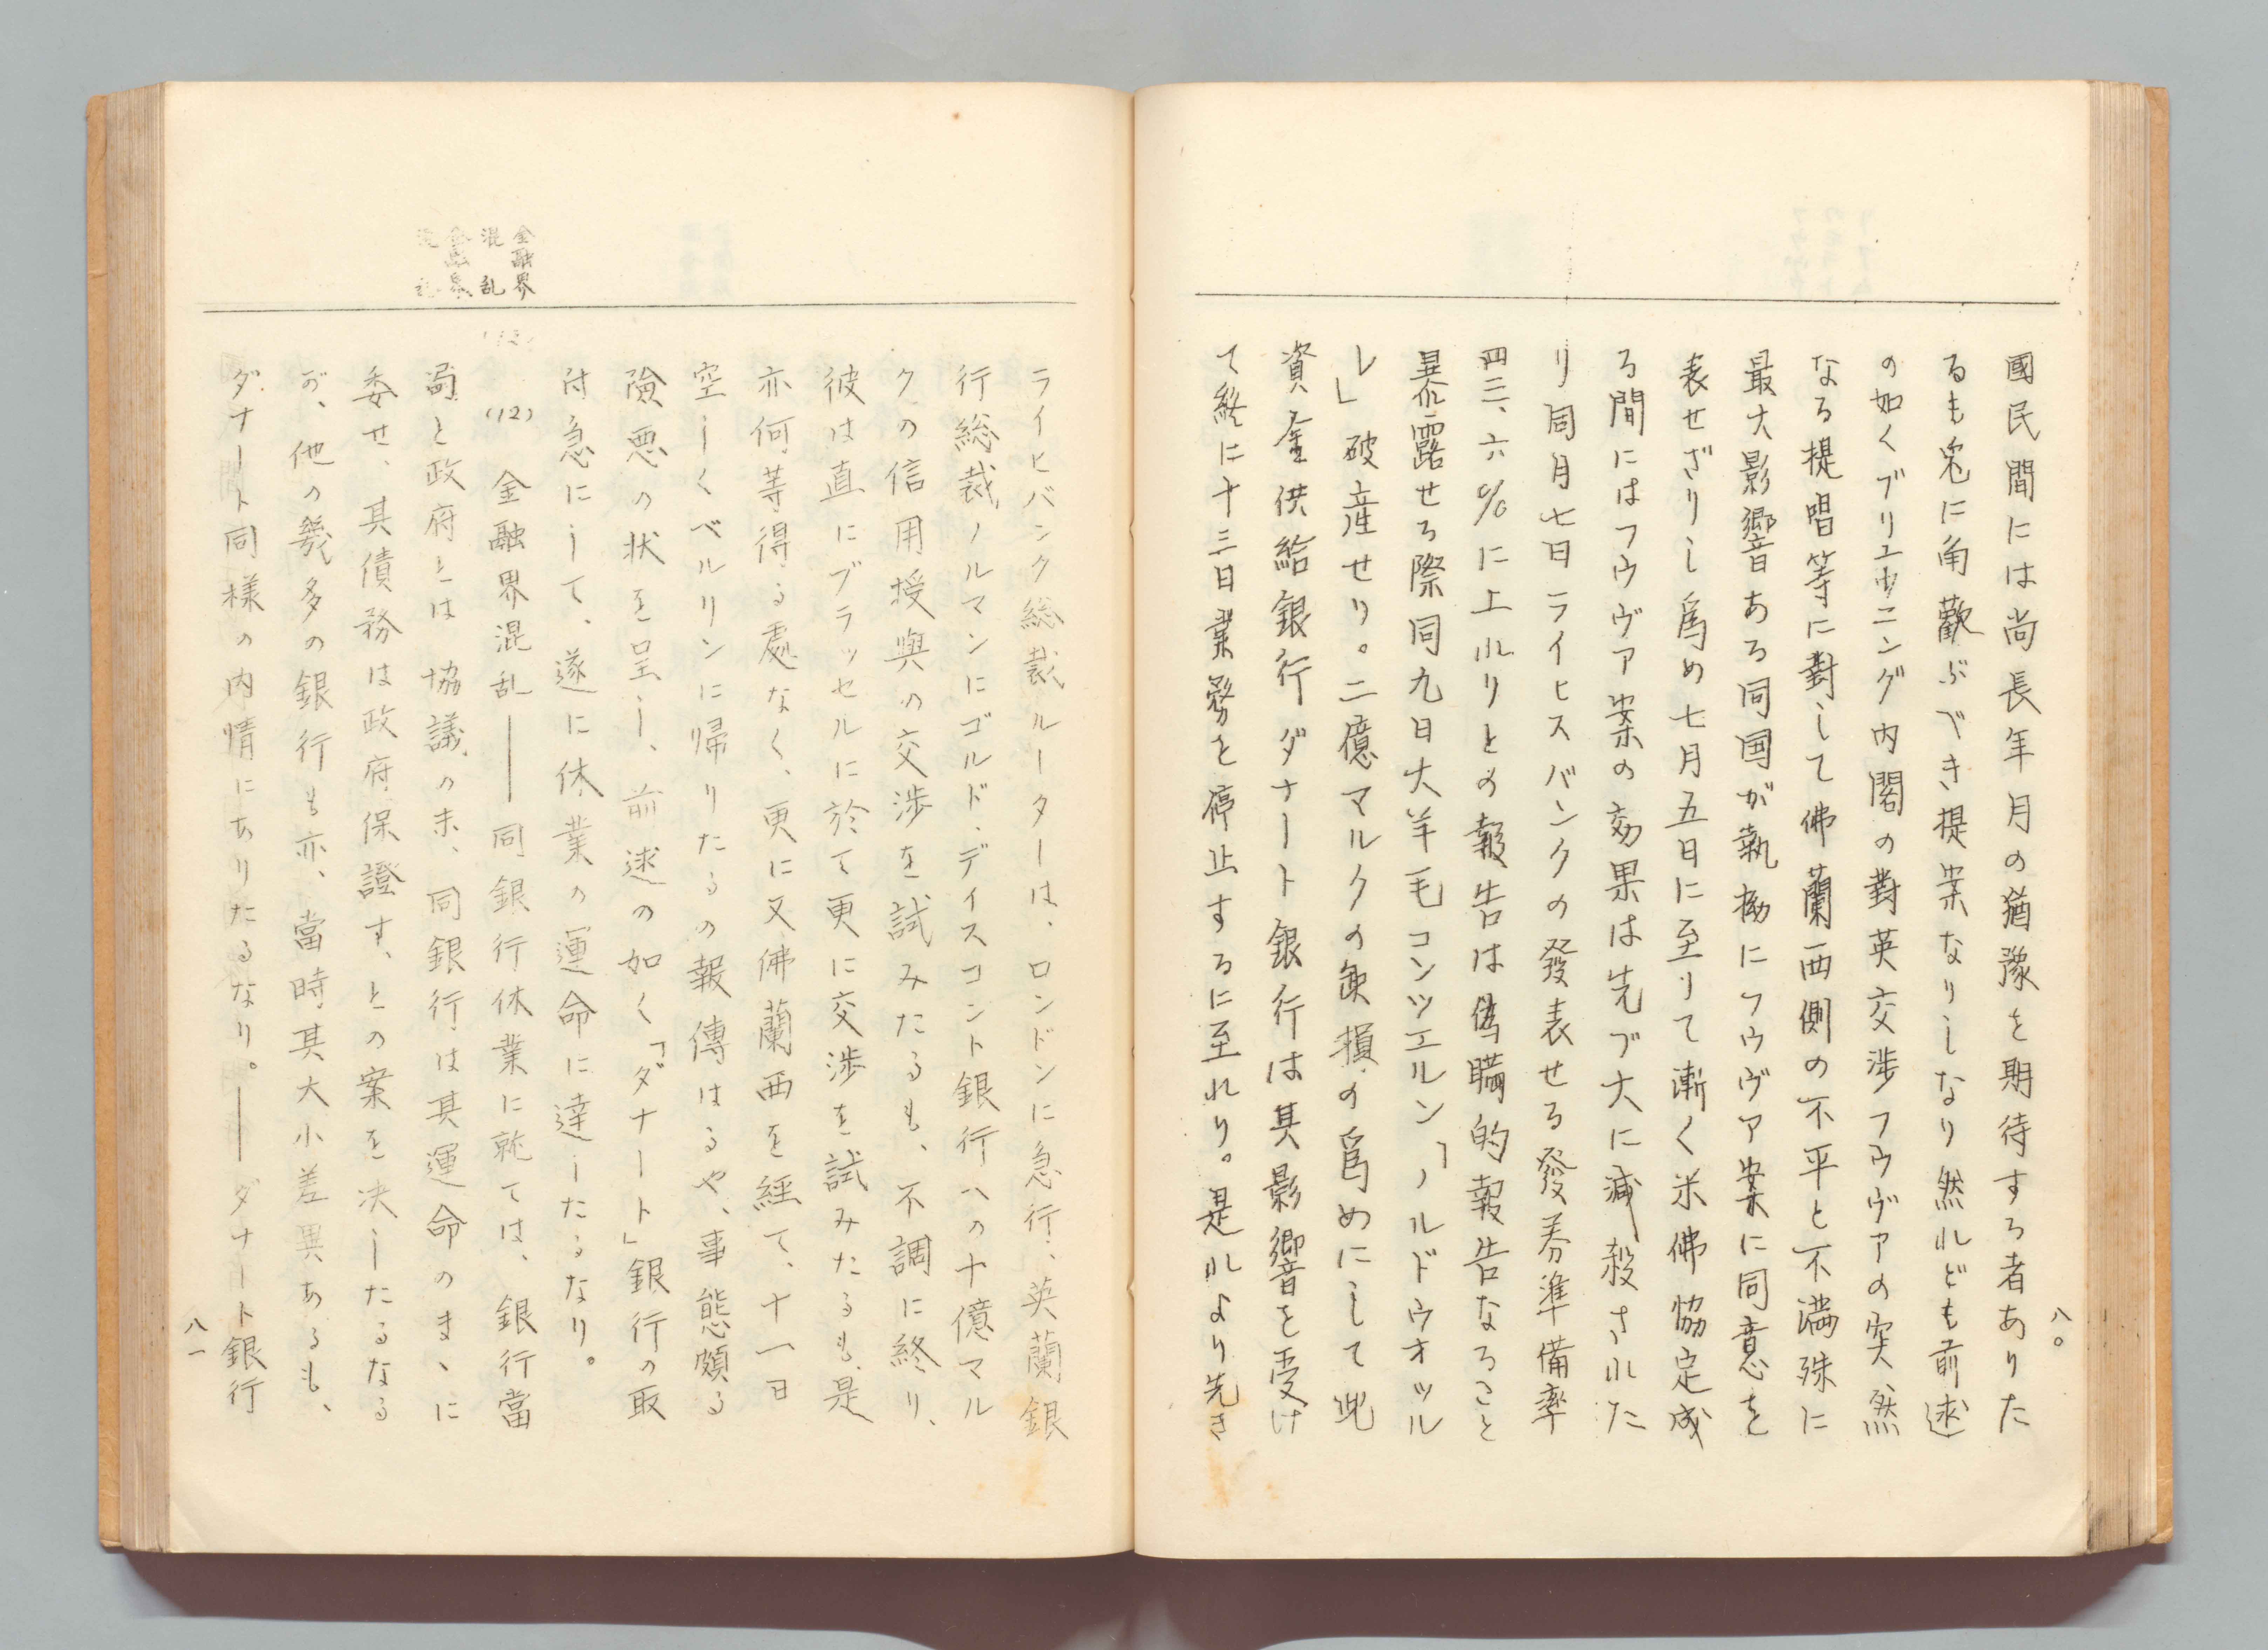 國民間には尚長年月の猶豫を期待する者ありた
るも兎に角歡ぶべき提案なりしなり然れども前述
の如くブリューニング内閣の對英交渉フウヴァの突然
なる提唱等に對して佛蘭西側の不平と不満殊に
最大影響ある同国が執拗にフウヴァ案に同意を
表せざりし爲め七月五日に至りて漸く米佛協定成
る間にはフウヴァ案の効果は先づ大に減殺された
り同月七日ライヒスバンクの發表せる發券準備率
四三、六%に上れりとの報告は偽瞞的報告なること
暴露せる際同九日大羊毛コンツエルン「ノルドウオッル
レ」破産せり。二億マルクの缺損の爲めにして此
資金供給銀行ダナート銀行は其影響を受け
て終に十三日業務を停止するに至れり。是れより先き
八〇
金融界
混乱
ライヒバンク総裁ルーターは、ロンドンに急行、英蘭銀
行総裁ノルマンにゴルド、デイスコント銀行への十億マル
クの信用授與の交渉を試みたるも、不調に終り、
彼は直にブラッセルに於て更に交渉を試みたるも、是
亦何等得る處なく、更に又佛蘭西を経て、十一日
空しくベルリンに帰りたるの報傳はるや、事態頗る
險悪の状を呈し、前述の如く「ダナート」銀行の取
付急にして、遂に休業の運命に達したるなり。
(12) 金融界混乱——同銀行休業に就ては、銀行當
局と政府とは協議の末、同銀行は其運命のまゝに
委せ、其債務は政府保證す、との案を決したるなる
が、他の幾多の銀行も亦、當時其大小差異あるも、
ダナート同様の内情にありたるなり。——ダナート銀行
八一